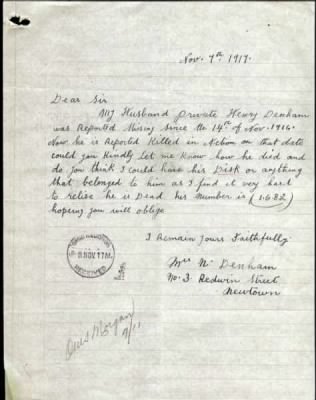 Nov. 7th. 1917.
Dear Sir
My Husband Private Henry Denham
was Reported Missing Since the 14th of Nov. 1916.
Now he is Reported Killed in Action on that date
could you Kindly Let me Know how he died and
do you think I could have his Disk or anything
that belonged to him as I find it very hard
to relise he is Dead. his number is (1682)
hoping you will oblige
I Remain Yours Faithfully
Mrs N Denham
No. 3 Redwin Street
Newtown
8 NOV. 17
RECEIVED
7/11